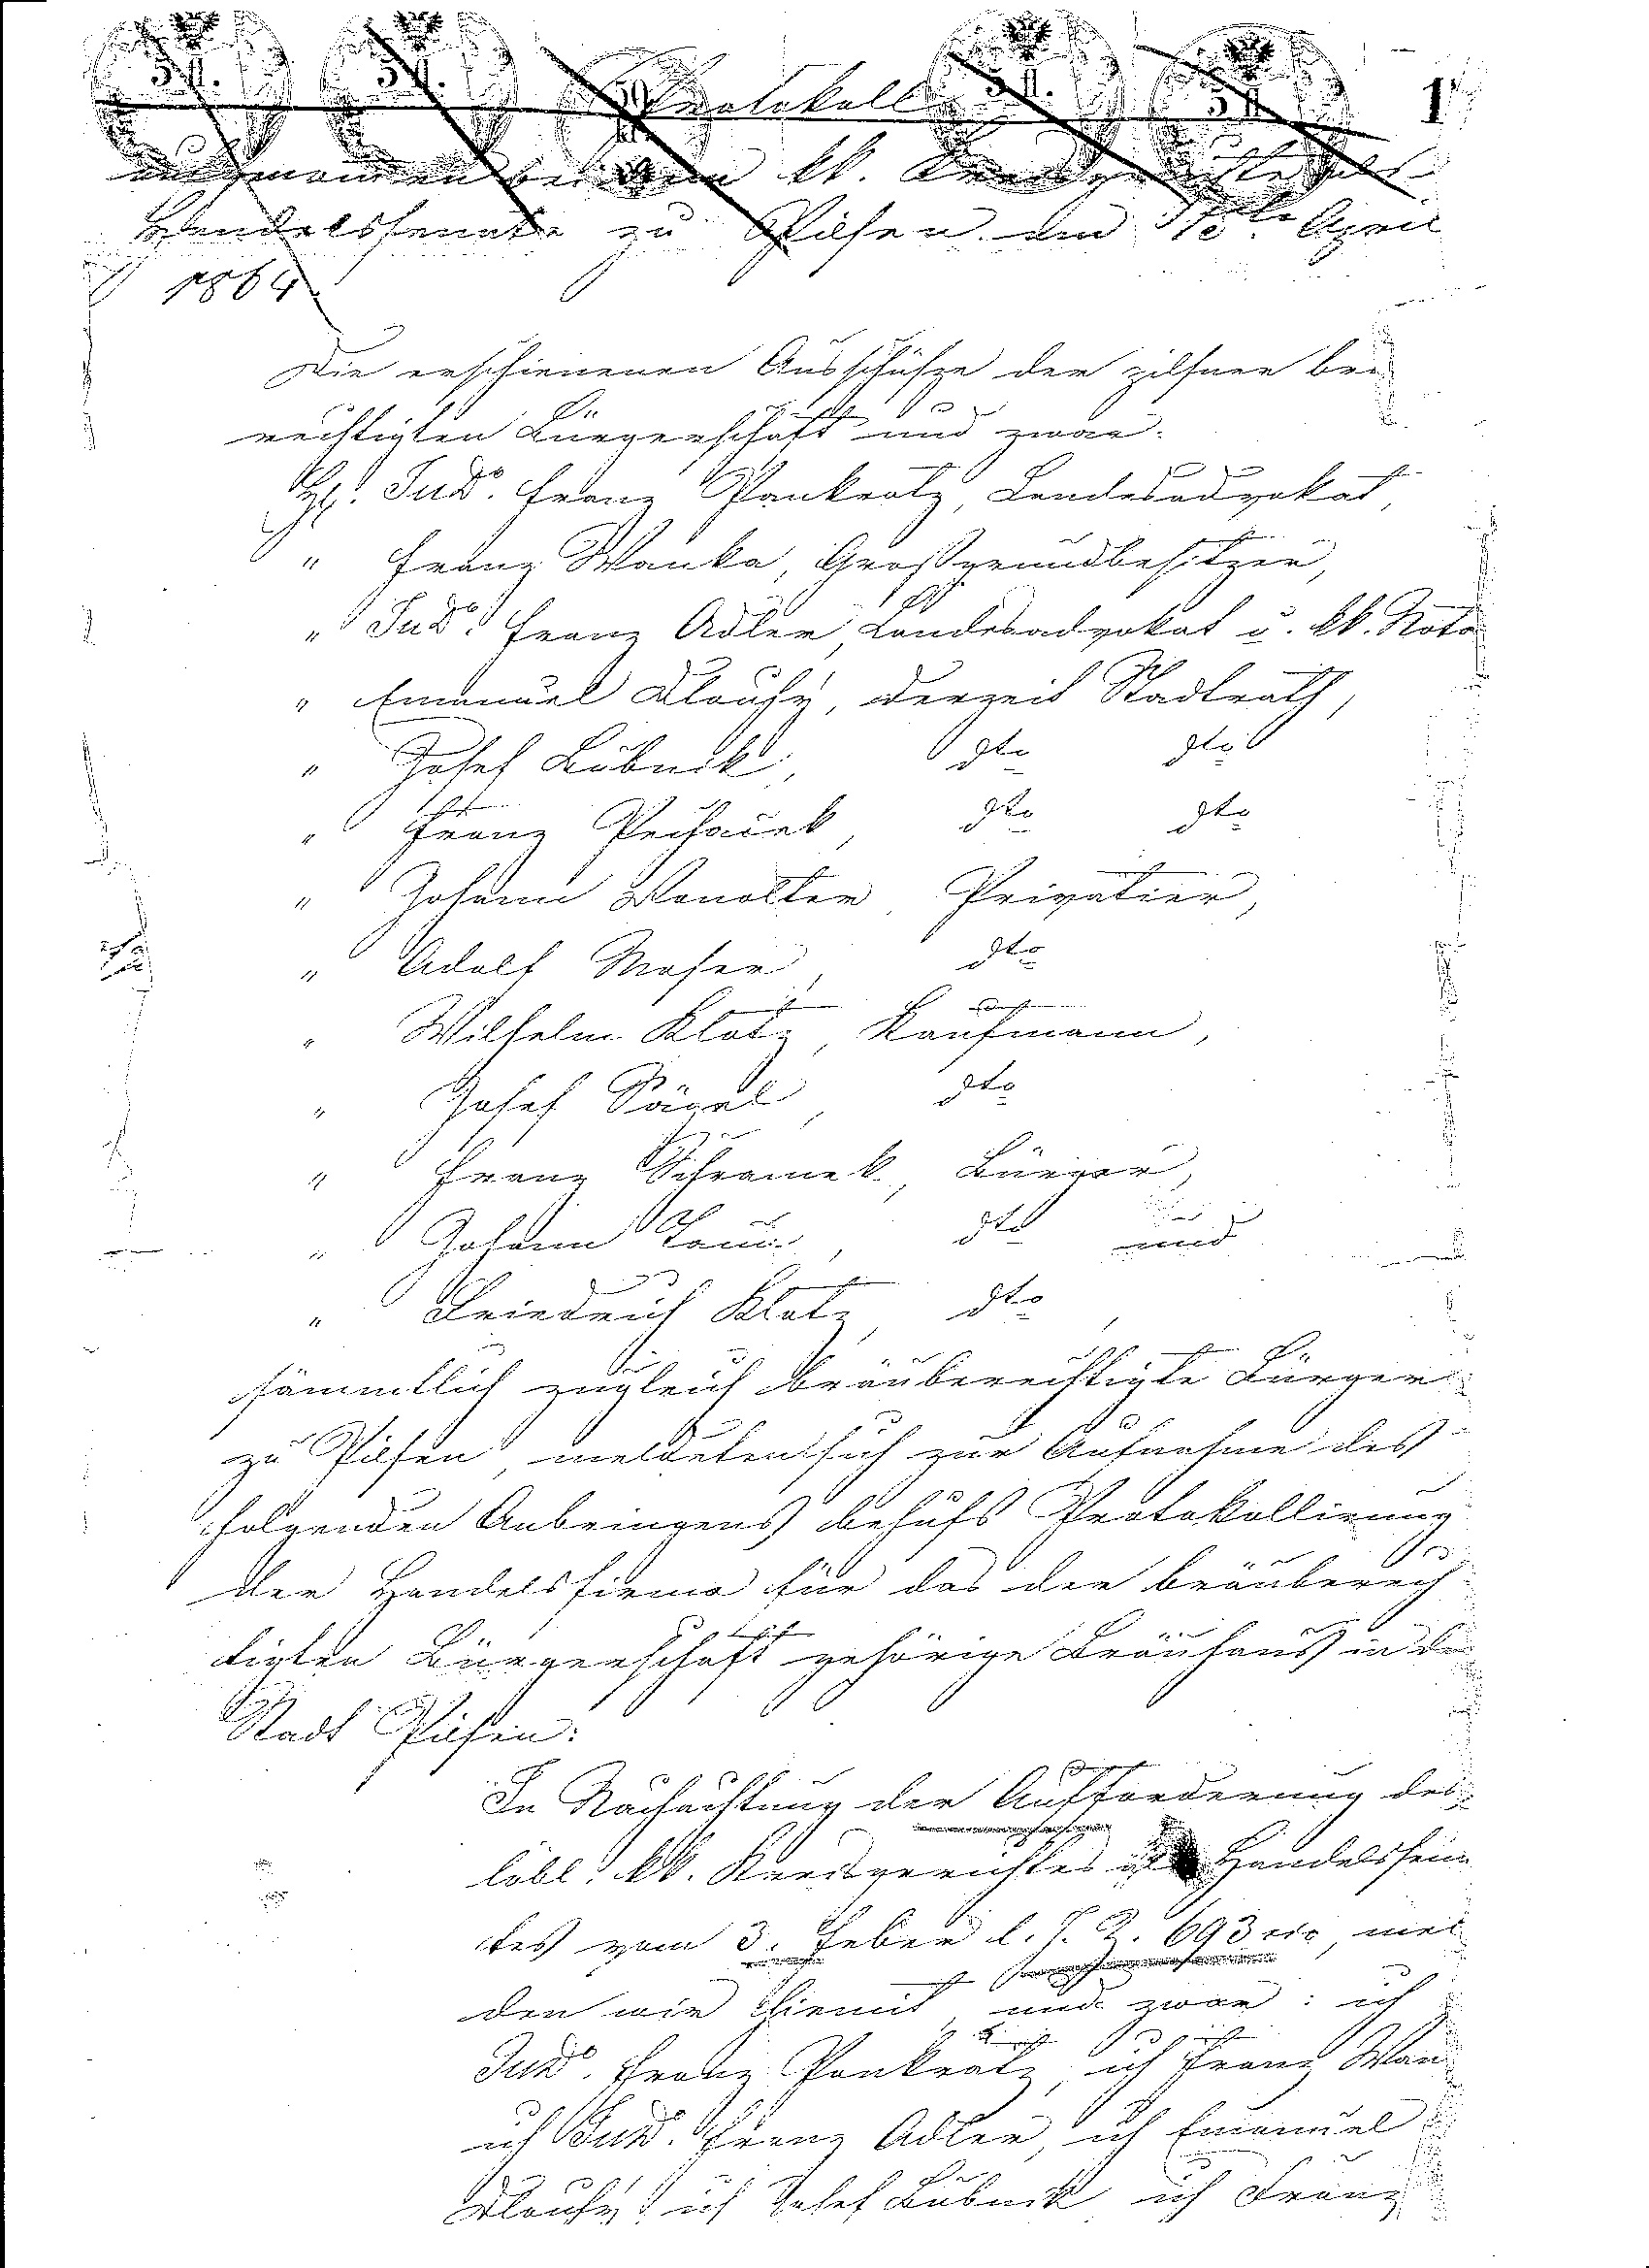 1
Protokoll
aufgenommen bei dem kk. Kreisgerichte als
Handelssenate zu Pilsen den April
1864
Die erschienenen Ausschüsse der pilsner be-
rechtigten Bürgerschaft und zwar.
H. JuD. Franz Pankratz, Landesadvokat,
" Franz Wanka, Großgrundbesitzer,
" JuD. Franz Adler, Landesadvokat u. kk. Nota
" Emanuel Tlouhy, derzeit Stadtrath,
" Josef Bubnik, dto dto
" Franz Pechaček, dto dto
" Johann Privatier,
" Adolf Moser, dto
" Wilhelm Klotz, Kaufmann,
" Josef dto
" Franz Schramek, Bürger,
" Johann dto und
" Friedrich Klotz, dto,
sämmtlich zugleich bräuberechtigte Bürger
zu Pilsen, meldeten sich zur Aufnahme des
folgenden Anbringens behufs Protokollirung
der Handelsfirma für das der bräuberech-
tigten Bürgerschaft gehörige Bräuhaus in de
Stadt Pilsen:
In Nachachtung der Aufforderung des
löbl. kk. Kreisgerichtes als Handelssena
tes vom 3. Feber l. J. Z. 693 mel
den wir hiemit, und zwar: ich
JuD. Franz Pankratz, ich Franz Wan
ich JuD. Franz Adler, ich Emanuel
Tlouhy, ich Josef Bubnik, ich Franz